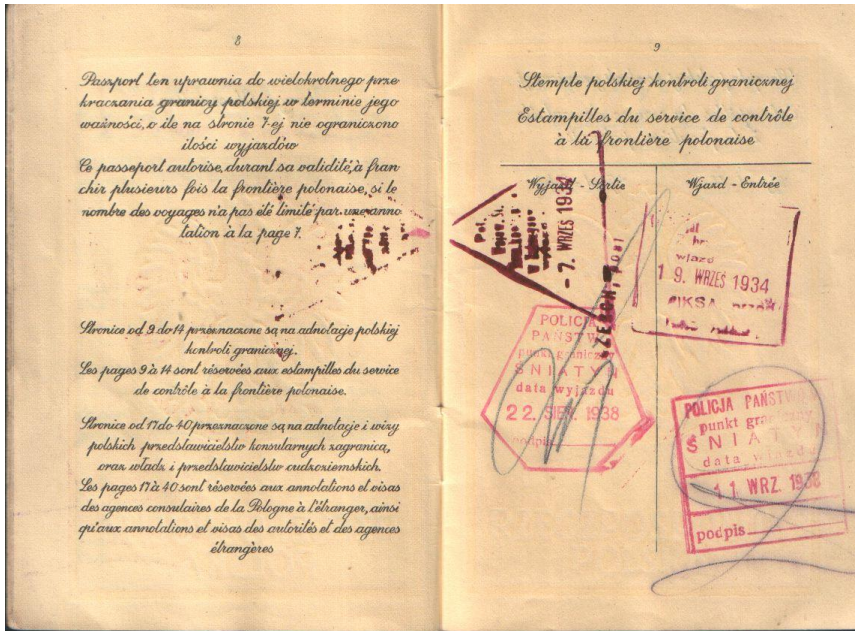 8
Paszport ten uprawnia do wielokrotnego prze-
kraczania granicy polskiej w terminie jego
ważności, o ile na stronie 7-ej nie ograniczono
ilości wyjazdów
Ce passeport autorise, durant sa validité, à fran
chir plusieurs fois la frontière polonaise, si le
nombre des voyages n'a pas été limité par une anno
tation à la page 7.
Stronice od 9 do 14 przeznaczone są na adnotacje polskiej
kontroli granicznej.
Les pages 9 à 14 sont réservées aux estampilles du service
de contrôle à la frontière polonaise.
Stronice od 17 do 40 przeznaczone są na adnotacje i wizy
polskich przedstawicielstw konsularnych zagranicą,
oraz władz i przedstawicielstw cudzoziemskich.
Les pages 17 à 40 sont réservées aux annotations et visas
des agences consulaires de la Pologne à l'étranger, ainsi
qu'aux annotations et visas des autorités et des agences
étrangères
9
Stemple polskiej kontroli granicznej
Estampilles du service de contrôle
à la frontière polonaise
Wyjazd - Sortie
Wjazd - Entrée
Pol.
- 7. WRZEŚ 1934
wjazd
19. WRZEŚ 1934
POLICJA
PAŃSTW
punkt graniczn
ŚNIATYN
data wyjazdu
22. SIER. 1938
podpis
POLICJA PAŃSTW
punkt graniczny
ŚNIATYN
data wjazdu
11. WRZ. 1938
podpis